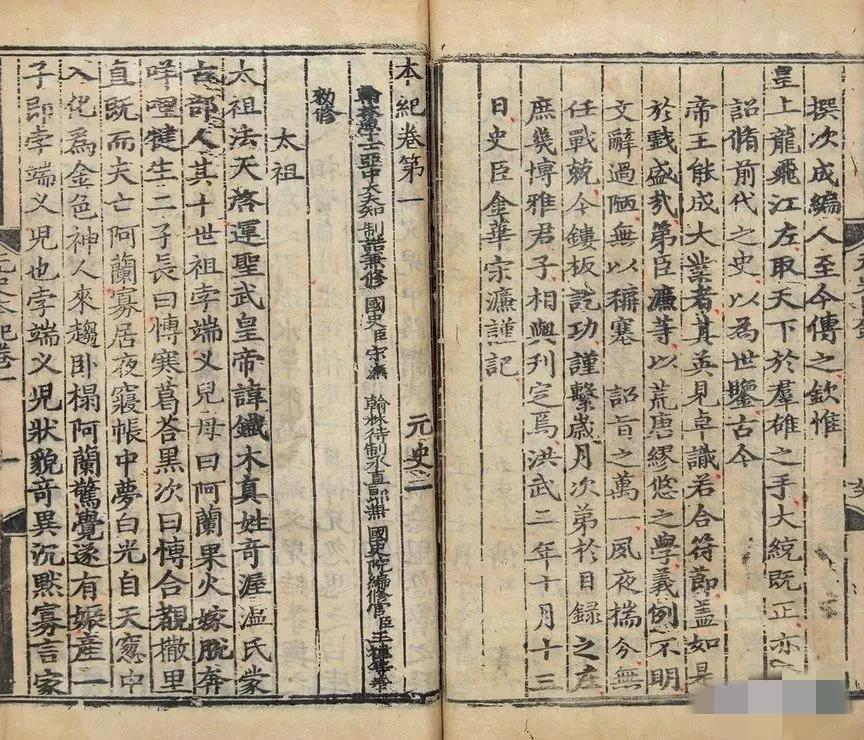 撰次成編人至今傳之欽惟
皇上龍飛江左取天下於羣雄之手大統既正亦
詔脩前代之史以為世鑒古今
帝王能成大業者其英見卓識若合符節盖如是
於戲盛㢤第臣濂等以荒唐繆悠之學義例不明
文辭過陋無以稱塞 詔旨之萬一夙夜揣分無
任戰兢今鏤板訖功謹繫歲月次第於目錄之左
庶幾博雅君子相與刊定焉洪武二年十月十三
日史臣金華宋濂謹記
本紀卷第一 元史二
翰林學士亞中大夫知 制誥兼修 國史臣宋濂 翰林待制承直郎兼 國史院編修官臣王禕奉
敕修
太祖
太祖法天啓運聖武皇帝諱鐵木真姓奇渥温氏蒙
古部人其十世祖孛端义兒母曰阿蘭果火嫁脫奔
咩哩犍生二子長曰博寒葛荅黑次曰博合覩撒里
直既而夫亡阿蘭寡居夜寢帳中夢白光自天窓中
入化爲金色神人來趨卧榻阿蘭驚覺遂有娠産一
子即孛端义兒也孛端义兒狀貌奇異沉默寡言家